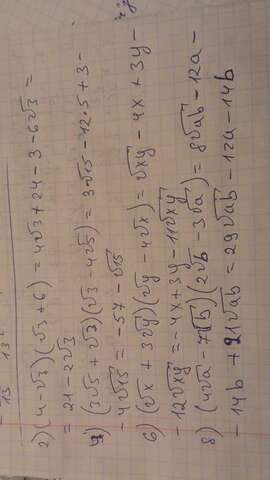 13 13
2) (4-√3)(√3+6) = 4√3+24-3-6√3 =
= 21-2√3
4) (3√5+√3)(√3-4√5) = 3√15-12·5+3-
-4√15 = -57-√15
6) (√x+3√y)(√y-4√x) = √xy-4x+3y-
-12√xy = -4x+3y-11√xy
8) (4√a-7√b)(2√b-3√a) = 8√ab-12a-
-14b+21√ab = 29√ab-12a-14b